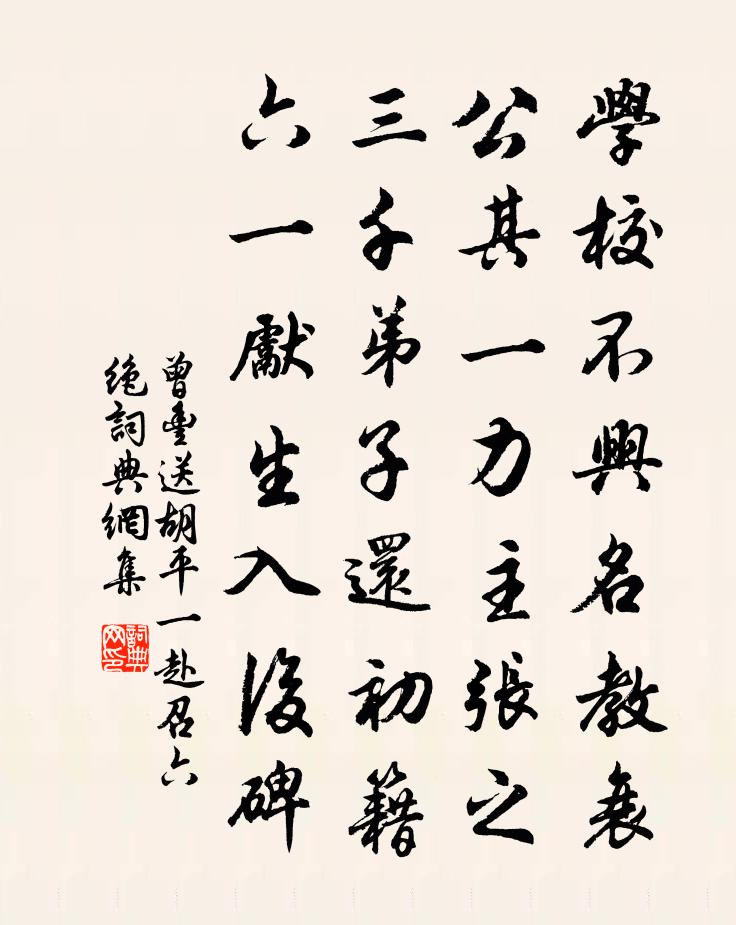 學校不興名教衰
公其一力主張之
三千弟子還初籍
六一獻生入後碑
曾豐送胡平一赴召六
絶詞典網集
詞典网印